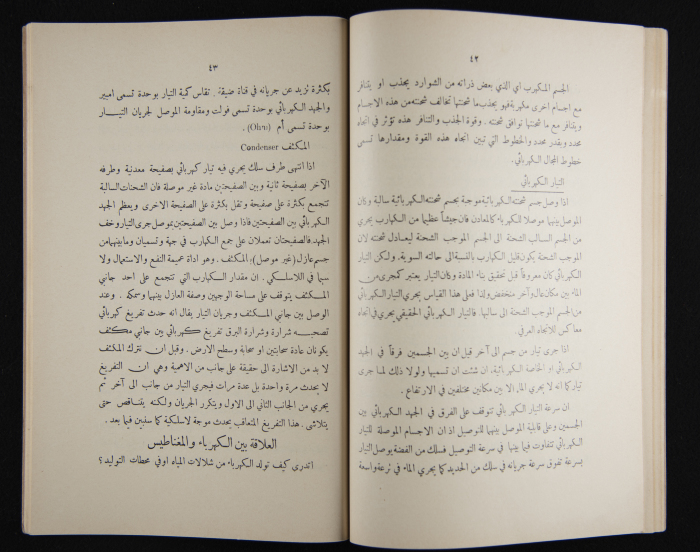 ٤٢
الجسم المكهرب اي الذي بعض ذراته من الشوارد يجذب او ينافر
مع اجسام اخرى مكهربة فهو يجذب ما شحنتها تخالف شحنته من هذه الاجسام
ويتنافر مع ما شحنتها توافق شحنته . وقوة الجذب والتنافر هذه تؤثر في اتجاه
محدد وبقدر محدد والخطوط التي تبين اتجاه هذه القوة ومقدارها تسمى
خطوط المجال الكهربائي.
التيار الكهربائي
اذا وصل جسم شحنته الكهربائية موجبة بجسم شحنته الكهربائية سالبة وكان
الموصل بينهما موصلا للكهرباء كالمعادن فان جيشاً عظيما من الكهارب يجري
من الجسم السالب الشحنة الى الجسم الموجب الشحنة ليعادل شحنته لان
الموجب الشحنة يكون قليل الكهارب بالنسبة الى حالته السوية. ولكن التيار
الكهربائي كان معروفاً قبل تحقيق بناء المادة وكان التيار يعتبر كمجرى من
الماء بين مكان عال وآخر منخفض ولذا فعلى هذا القياس يجري التيار الكهربائي
من الجسم الموجب الشحنة الى سالبها. فالتيار الكهربائي الحقيقي يجري في اتجاه
معاكس للاتجاه العرفي
اذا جرى تيار من جسم الى آخر قبل ان بين الجسمين فرقاً في الجهد
الكهربائي او الخاصة الكهربائية، ان شئت ان تسميها ولولا ذلك لما جرى
تيار كما انه لا يجري الماء الا بين مكانين مختلفين في الارتفاع .
ان سرعة التيار الكهربائي تتوقف على الفرق في الجهد الكهربائي بين
الجسمين وعلى قابلية الموصل بينهما للتوصيل اذ ان الاجسام الموصلة للتيار
الكهربائي تتفاوت فيما بينها في سرعة التوصيل فسلك من الفضة يوصل التيار
بسرعة تفوق سرعة جريانه في سلك من الحديد كما يجري الماء في ترعة واسعة
٤٣
بكثرة تزيد عن جريانه في قناة ضيقة . تقاس كمية التيار بوحدة تسمى امبير
والجهد الكهربائي بوحدة تسمى فولت ومقاومة الموصل لجريان التيار
بوحدة تسمى أم (Ohm) .
المكثف Condenser
اذا انتهى طرف سلك يجري فيه تيار كهربائي بصفيحة معدنية وطرفه
الآخر بصفيحة ثانية وبين الصفيحتين مادة غير موصلة فان الشحنات السالبة
تتجمع بكثرة على صفيحة وتقل بكثرة على الصفيحة الاخرى ويعظم الجهد
الكهربائي بين الصفيحتين فاذا وصل بين الصفيحتين بموصل جرى التيار وخف
الجهد فالصفيحتان تعملان على جمع الكهارب في جهة وتسميان وما بينهما من
جسم عازل (غير موصل)؛ المكثف . وهو اداة عميمة النفع والاستعمال ولا
سيما في اللاسلكي . ان مقدار الكهارب التي تتجمع على احد جانبي
المكثف يتوقف على مساحة الوجهين وصفة العازل بينهما وسمكه . وعند
الوصل بين جانبي المكثف وجريان التيار يقال انه حدث تفريغ كهربائي
تصحبه شرارة وشرارة البرق تفريغ كهربائي بين جانبي مكثف
يكونان عادة سحابتين او سحابة وسطح الارض . وقبل ان نترك المكثف
لا بد من الاشارة الى حقيقة على جانب من الاهمية وهي ان التفريغ
لا يحدث مرة واحدة بل عدة مرات فيجري التيار من جانب الى آخر ثم
يجري من الجانب الثاني الى الاول ويتكرر الجريان ولكنه يتناقص حتى
يتلاشى . هذا التفريغ المتعاقب يحدث موجة لاسلكية كما سنبين فيما بعد .
العلاقة بين الكهرباء والمغناطيس
اتدري كيف تولد الكهرباء من شلالات المياه او في محطات التوليد ؟